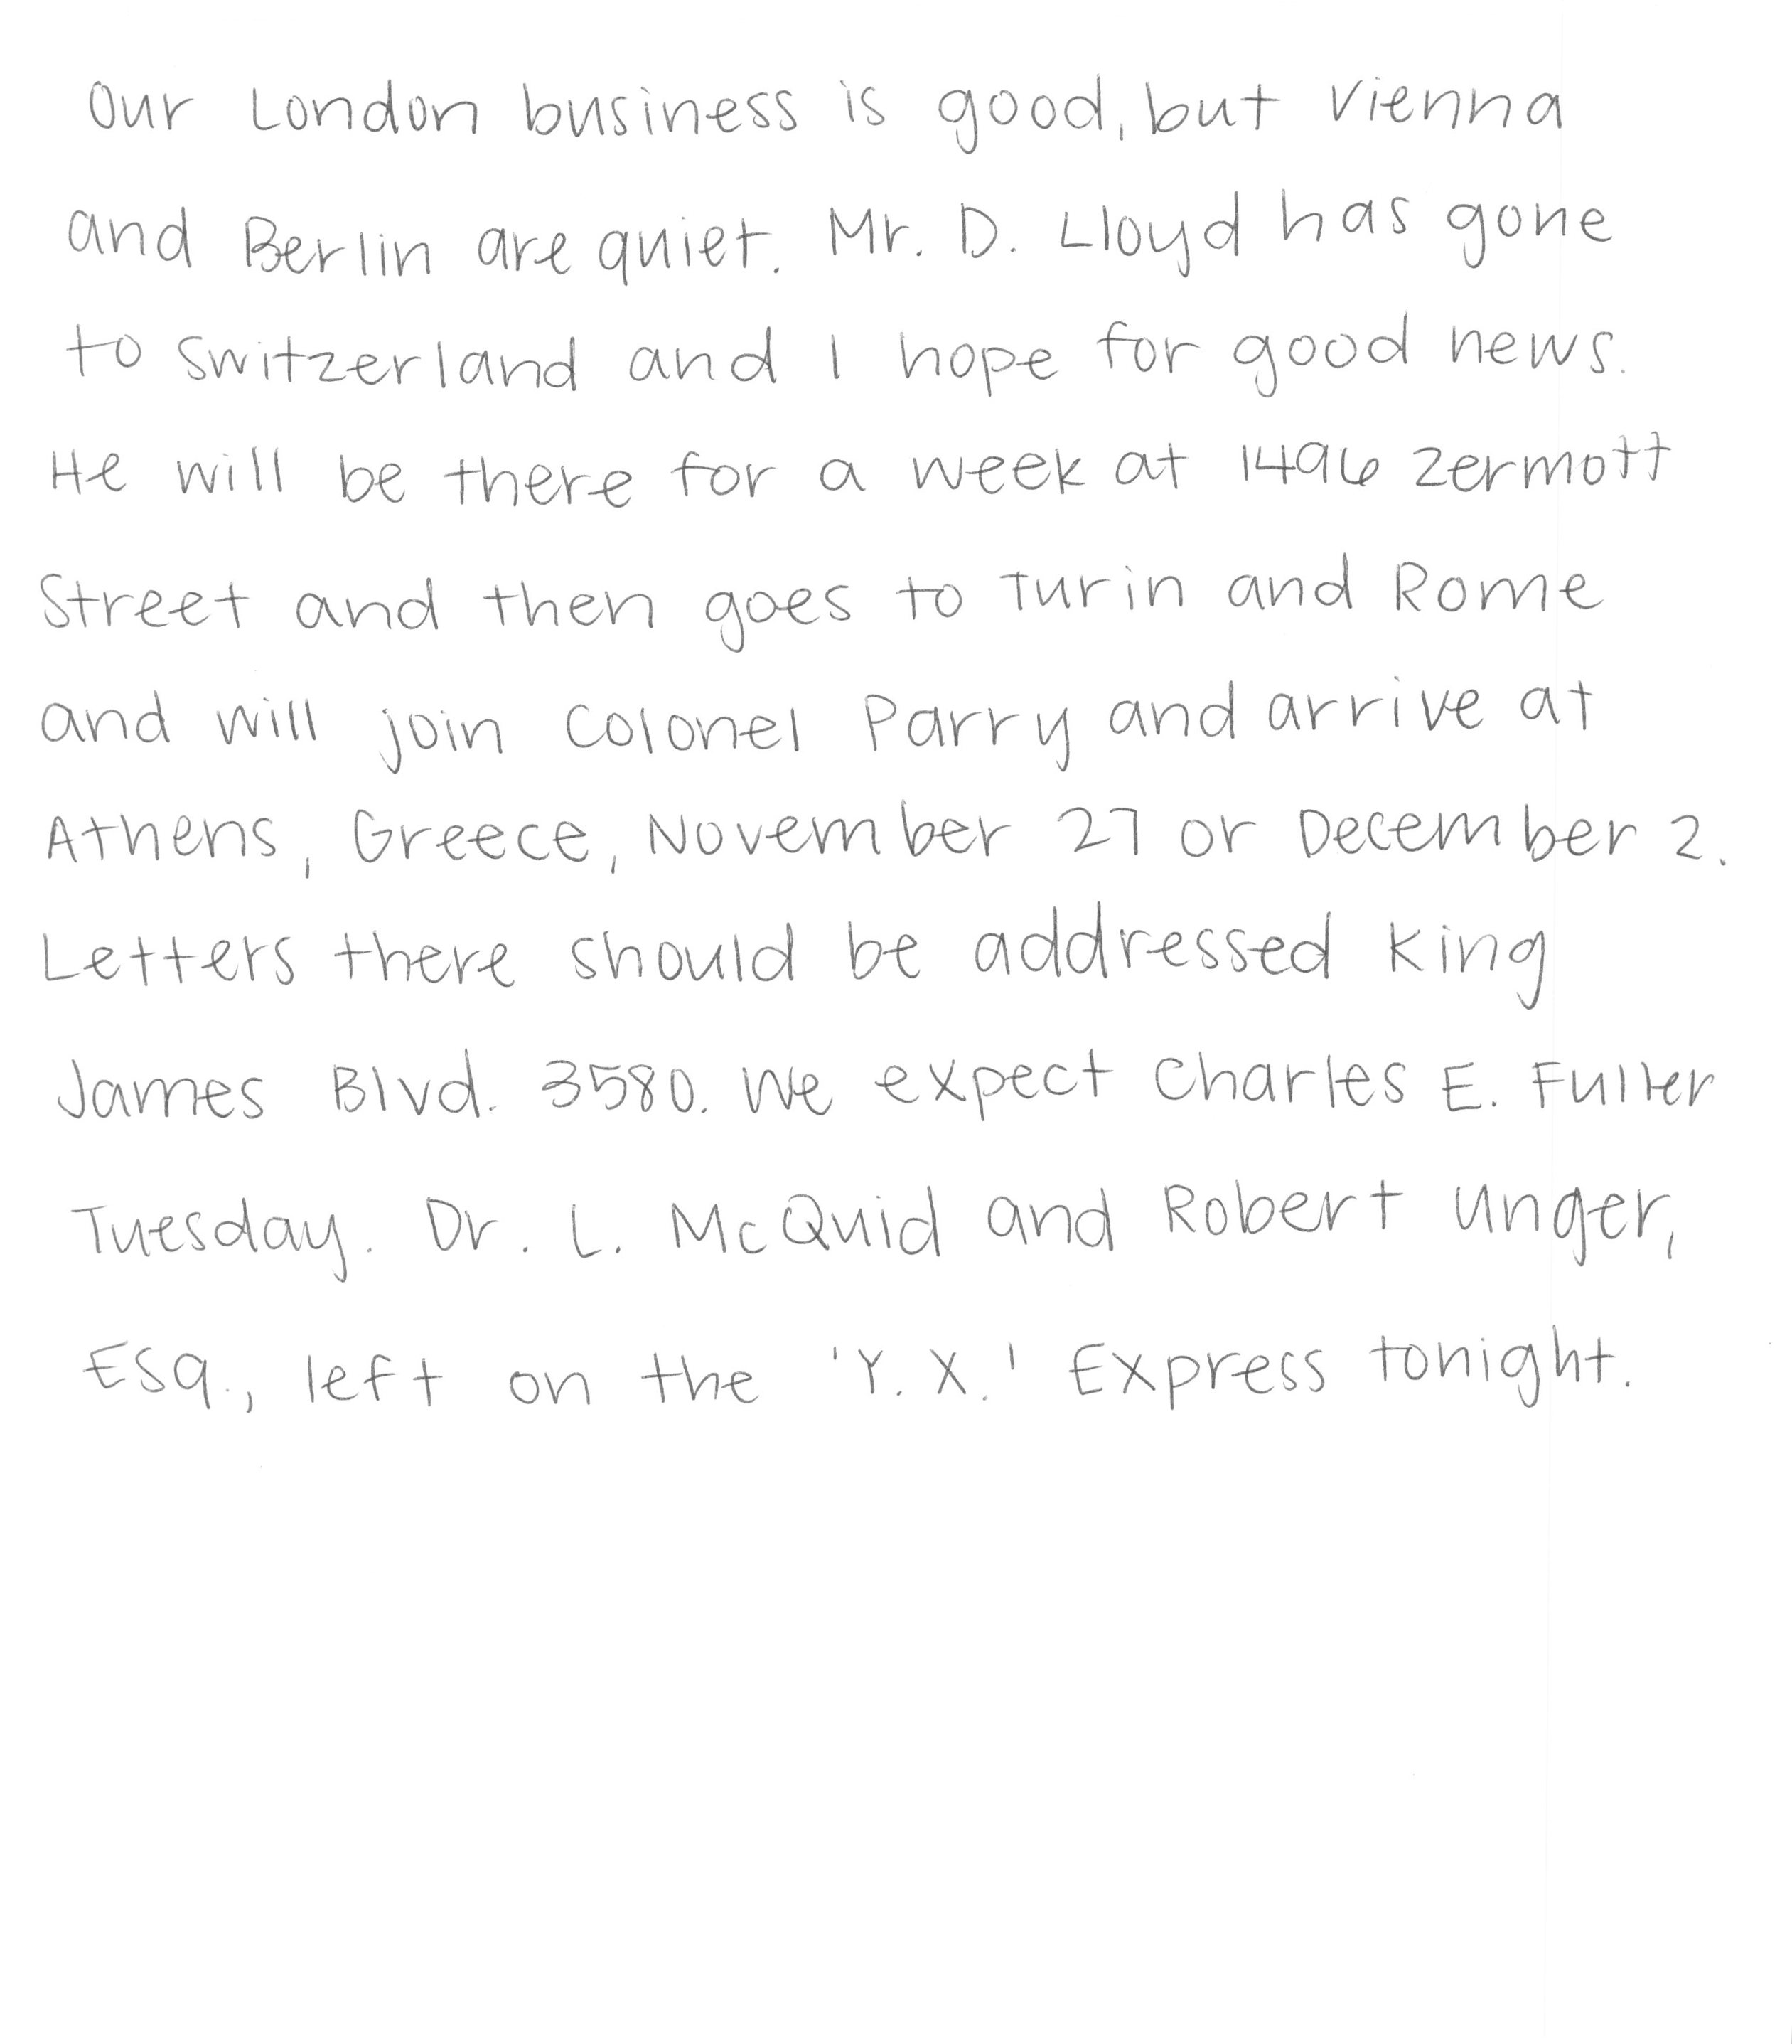 Our London business is good, but Vienna
and Berlin are quiet. Mr. D. Lloyd has gone
to Switzerland and I hope for good news.
He will be there for a week at 1496 Zermott
Street and then goes to Turin and Rome
and will join Colonel Parry and arrive at
Athens, Greece, November 27 or December 2.
Letters there should be addressed King
James Blvd. 3580. We expect Charles E. Fuller
Tuesday. Dr. L. McQuid and Robert Unger,
Esq., left on the 'Y. X.' Express tonight.